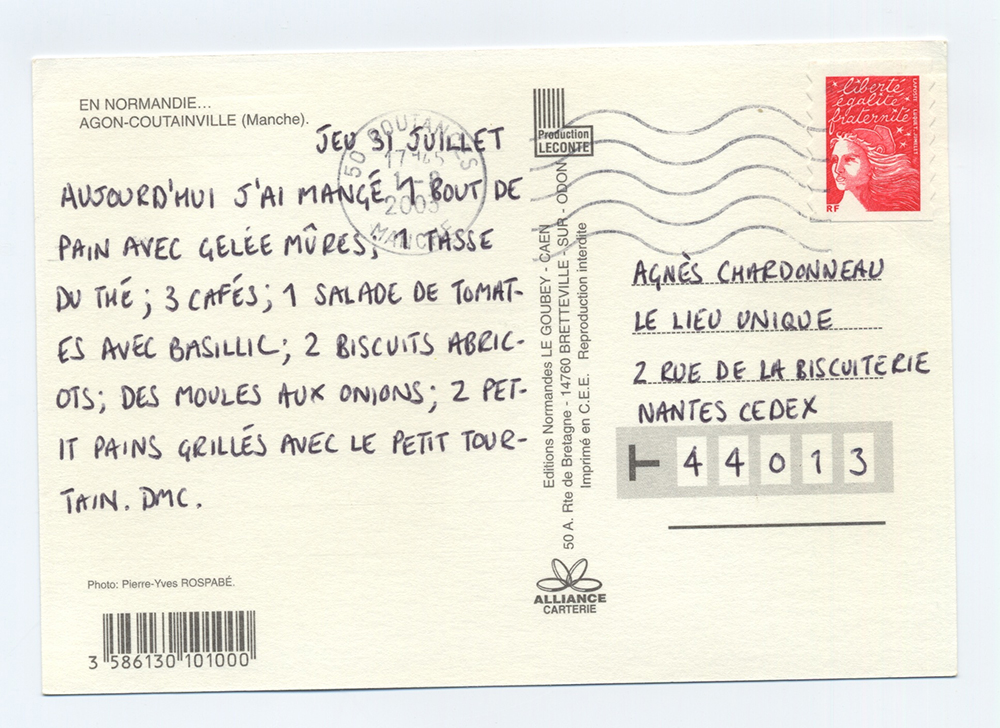 EN NORMANDIE...
AGON-COUTAINVILLE (Manche).
JEU 31 JUILLET
AUJOURD'HUI J'AI MANGÉ 1 BOUT DE
PAIN AVEC GELÉE MÛRES; 1 TASSE
DU THÉ; 3 CAFÉS; 1 SALADE DE TOMAT-
ES AVEC BASILLIC; 2 BISCUITS ABRIC-
OTS; DES MOULES AUX ONIONS; 2 PET-
IT PAINS GRILLÉS AVEC LE PETIT TOUR-
TAIN. DMC.
Photo: Pierre-Yves ROSPABÉ.
3 586130 101000
50 COUTANCES
17H45
1-8
2003
MANCHE
Production
LECONTE
Editions Normandes LE GOUBEY - CAEN
50 A. Rte de Bretagne - 14760 BRETTEVILLE - SUR - ODON
Imprimé en C.E.E. Reproduction interdite
ALLIANCE
CARTERIE
liberté
égalité
fraternité
RF
AGNÈS CHARDONNEAU
LE LIEU UNIQUE
2 RUE DE LA BISCUITERIE
NANTES CEDEX
44013